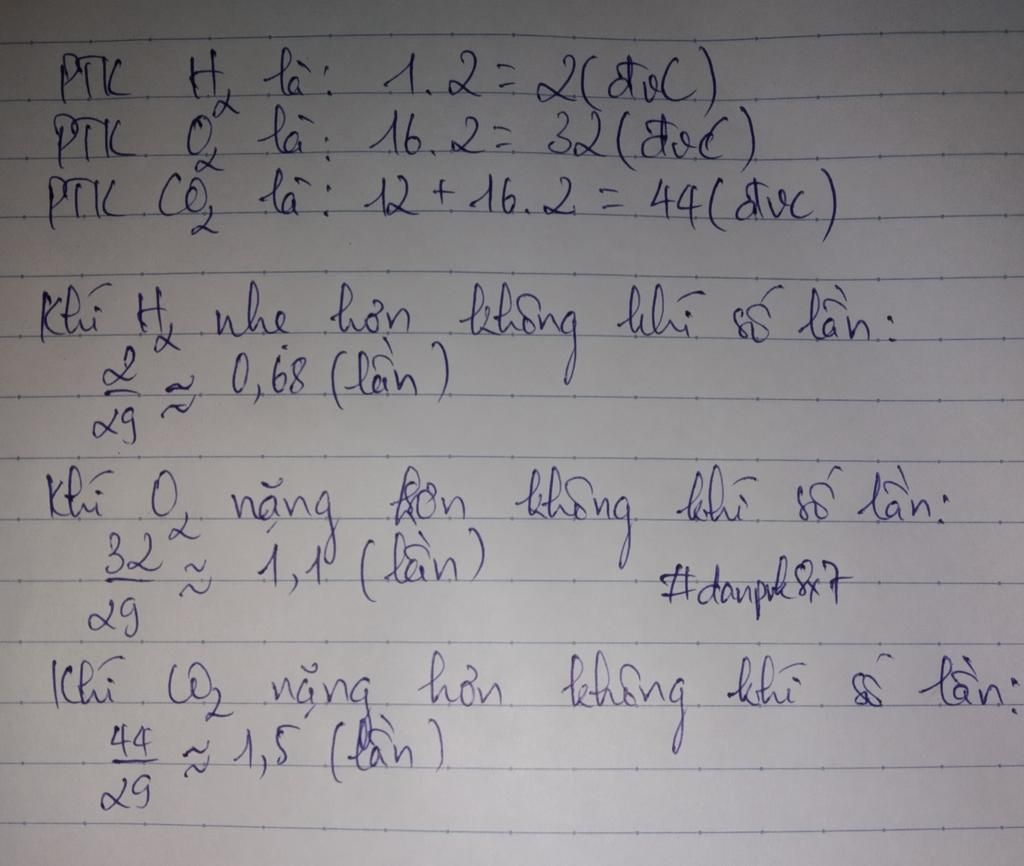 PTK H₂ là: 1.2 = 2 (đvC)
PTK O₂ là: 16.2 = 32 (đvC)
PTK CO₂ là: 12 + 16.2 = 44 (đvC)
Khí H₂ nhẹ hơn không khí số lần:
2/29 ≈ 0,68 (lần)
Khí O₂ nặng hơn không khí số lần:
32/29 ≈ 1,1 (lần)
#danpvk8x7
Khí CO₂ nặng hơn không khí số lần:
44/29 ≈ 1,5 (lần)